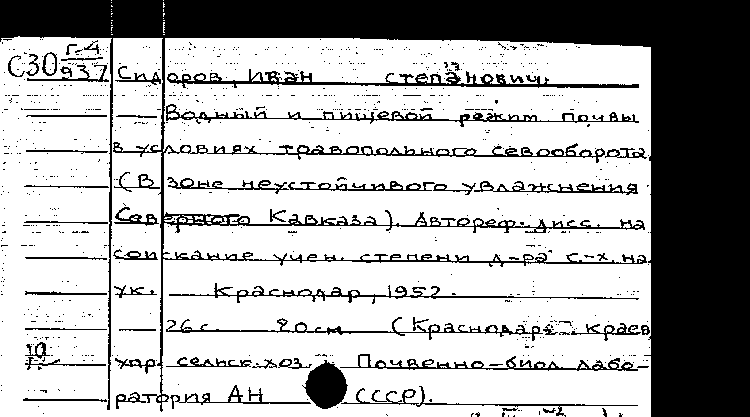 Г-4
С30 937 Сидоров, Иван Степанович.
Водный и пищевой режим почвы
в условиях травопольного севооборота.
(В зоне неустойчивого увлажнения
Северного Кавказа). Автореф. дисс. на
соискание учен. степени д-ра с.-х. на
ук. Краснодар, 1952.
26 с. 20 см. (Краснодарс. краев
сельск. хоз. Почвенно-биол лабо-
ратория АН СССР).